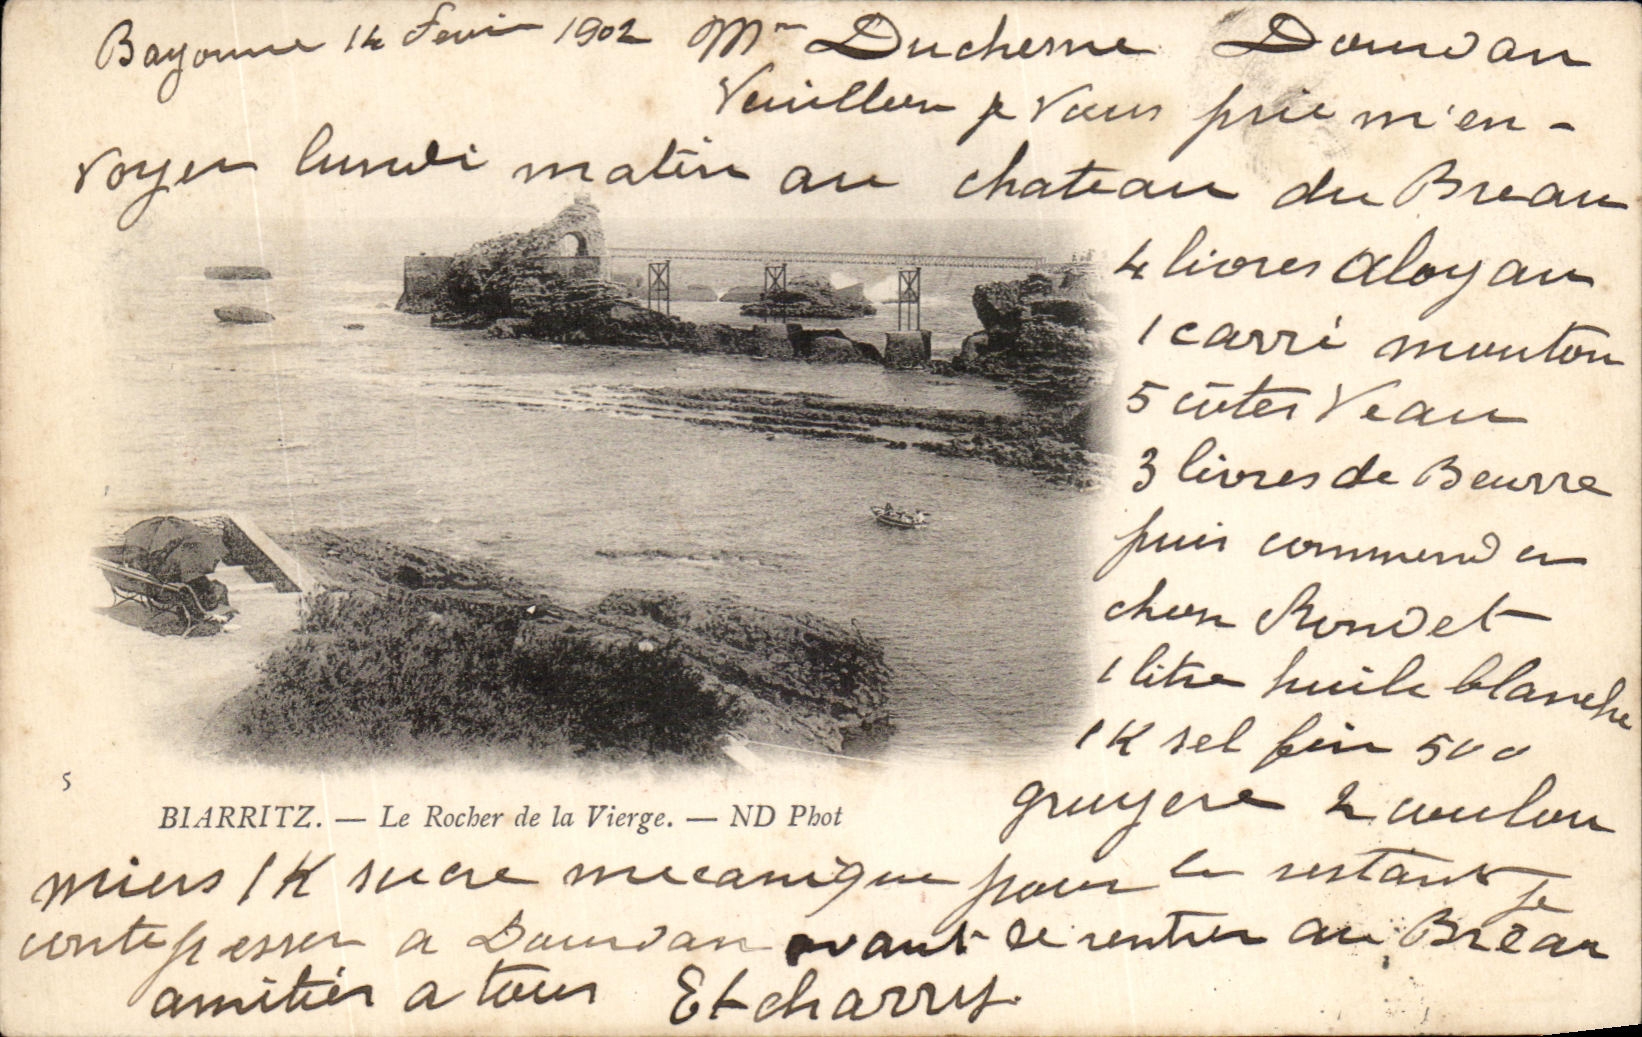 Bayonne 14 Fevrier 1902 Mr Duchesne Dourdan
Veuillez je vous prie m'en-
voyer lundi matin au chateau du Breau
4 livres aloyau
1 carré mouton
5 côtes Veau
3 livres de Beurre
puis commander
chez Rondet
1 litre huile blanche
1 K sel fin 500
gruyere 2 coulou
miers 1 K sucre mecanique pour le restant je
conte passer a Dourdan avant de rentrer au Bréau
amitiés a tous Etcharry.
5
BIARRITZ. — Le Rocher de la Vierge. — ND Phot